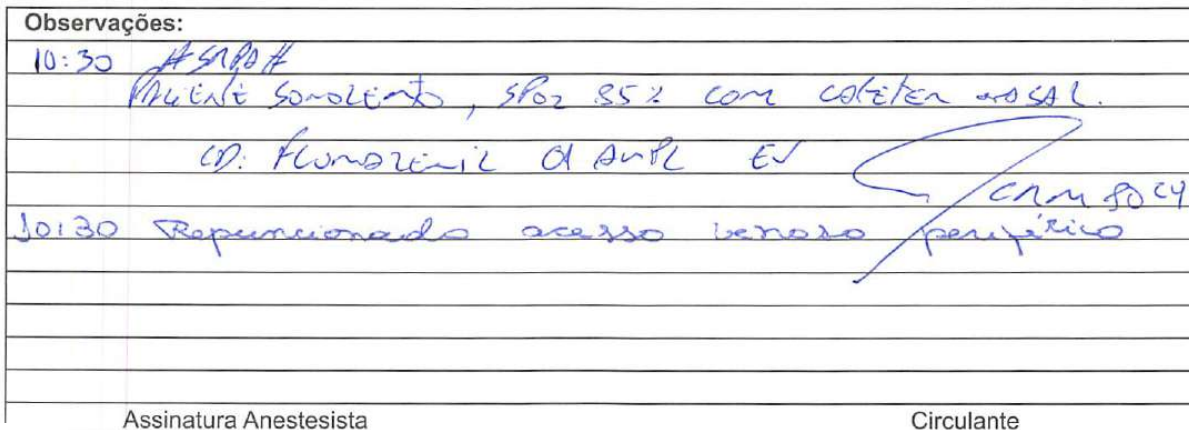 Observações:
10:30 #SRPA#
PACIENTE SONOLENTO, SPO2 85% COM CATETER NASAL.
CD: FLUMAZENIL 01 AMPL EV
CRM
10:30 Repuncionado acesso venoso periférico
Assinatura Anestesista Circulante